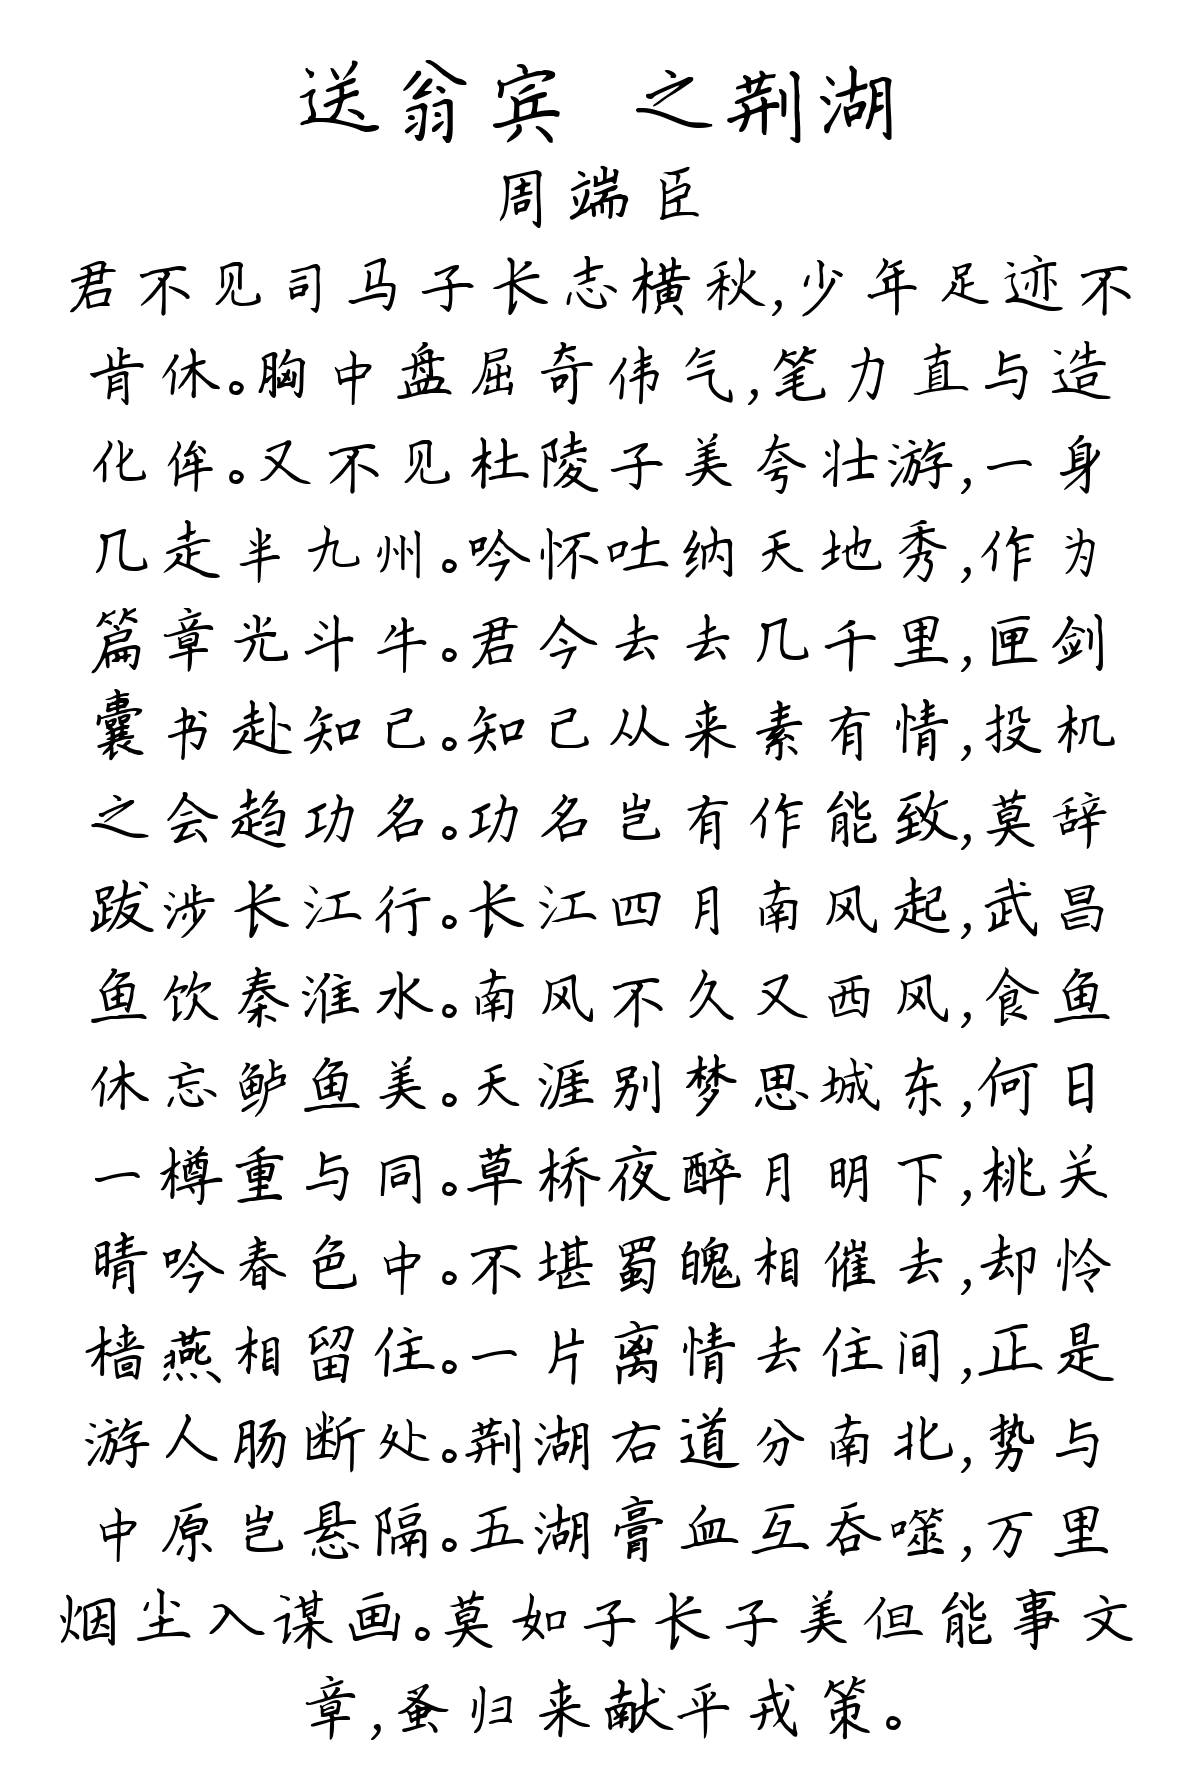 送翁宾 之荆湖
周端臣
君不见司马子长志横秋,少年足迹不
肯休。胸中盘屈奇伟气,笔力直与造
化侔。又不见杜陵子美夸壮游,一身
几走半九州。吟怀吐纳天地秀,作为
篇章光斗牛。君今去去几千里,匣剑
囊书赴知己。知己从来素有情,投机
之会趋功名。功名岂有作能致,莫辞
跋涉长江行。长江四月南风起,武昌
鱼饮秦淮水。南风不久又西风,食鱼
休忘鲈鱼美。天涯别梦思城东,何日
一樽重与同。草桥夜醉月明下,桃关
晴吟春色中。不堪蜀魄相催去,却怜
樯燕相留住。一片离情去住间,正是
游人肠断处。荆湖右道分南北,势与
中原岂悬隔。五湖膏血互吞噬,万里
烟尘入谋画。莫如子长子美但能事文
章,蚤归来献平戎策。